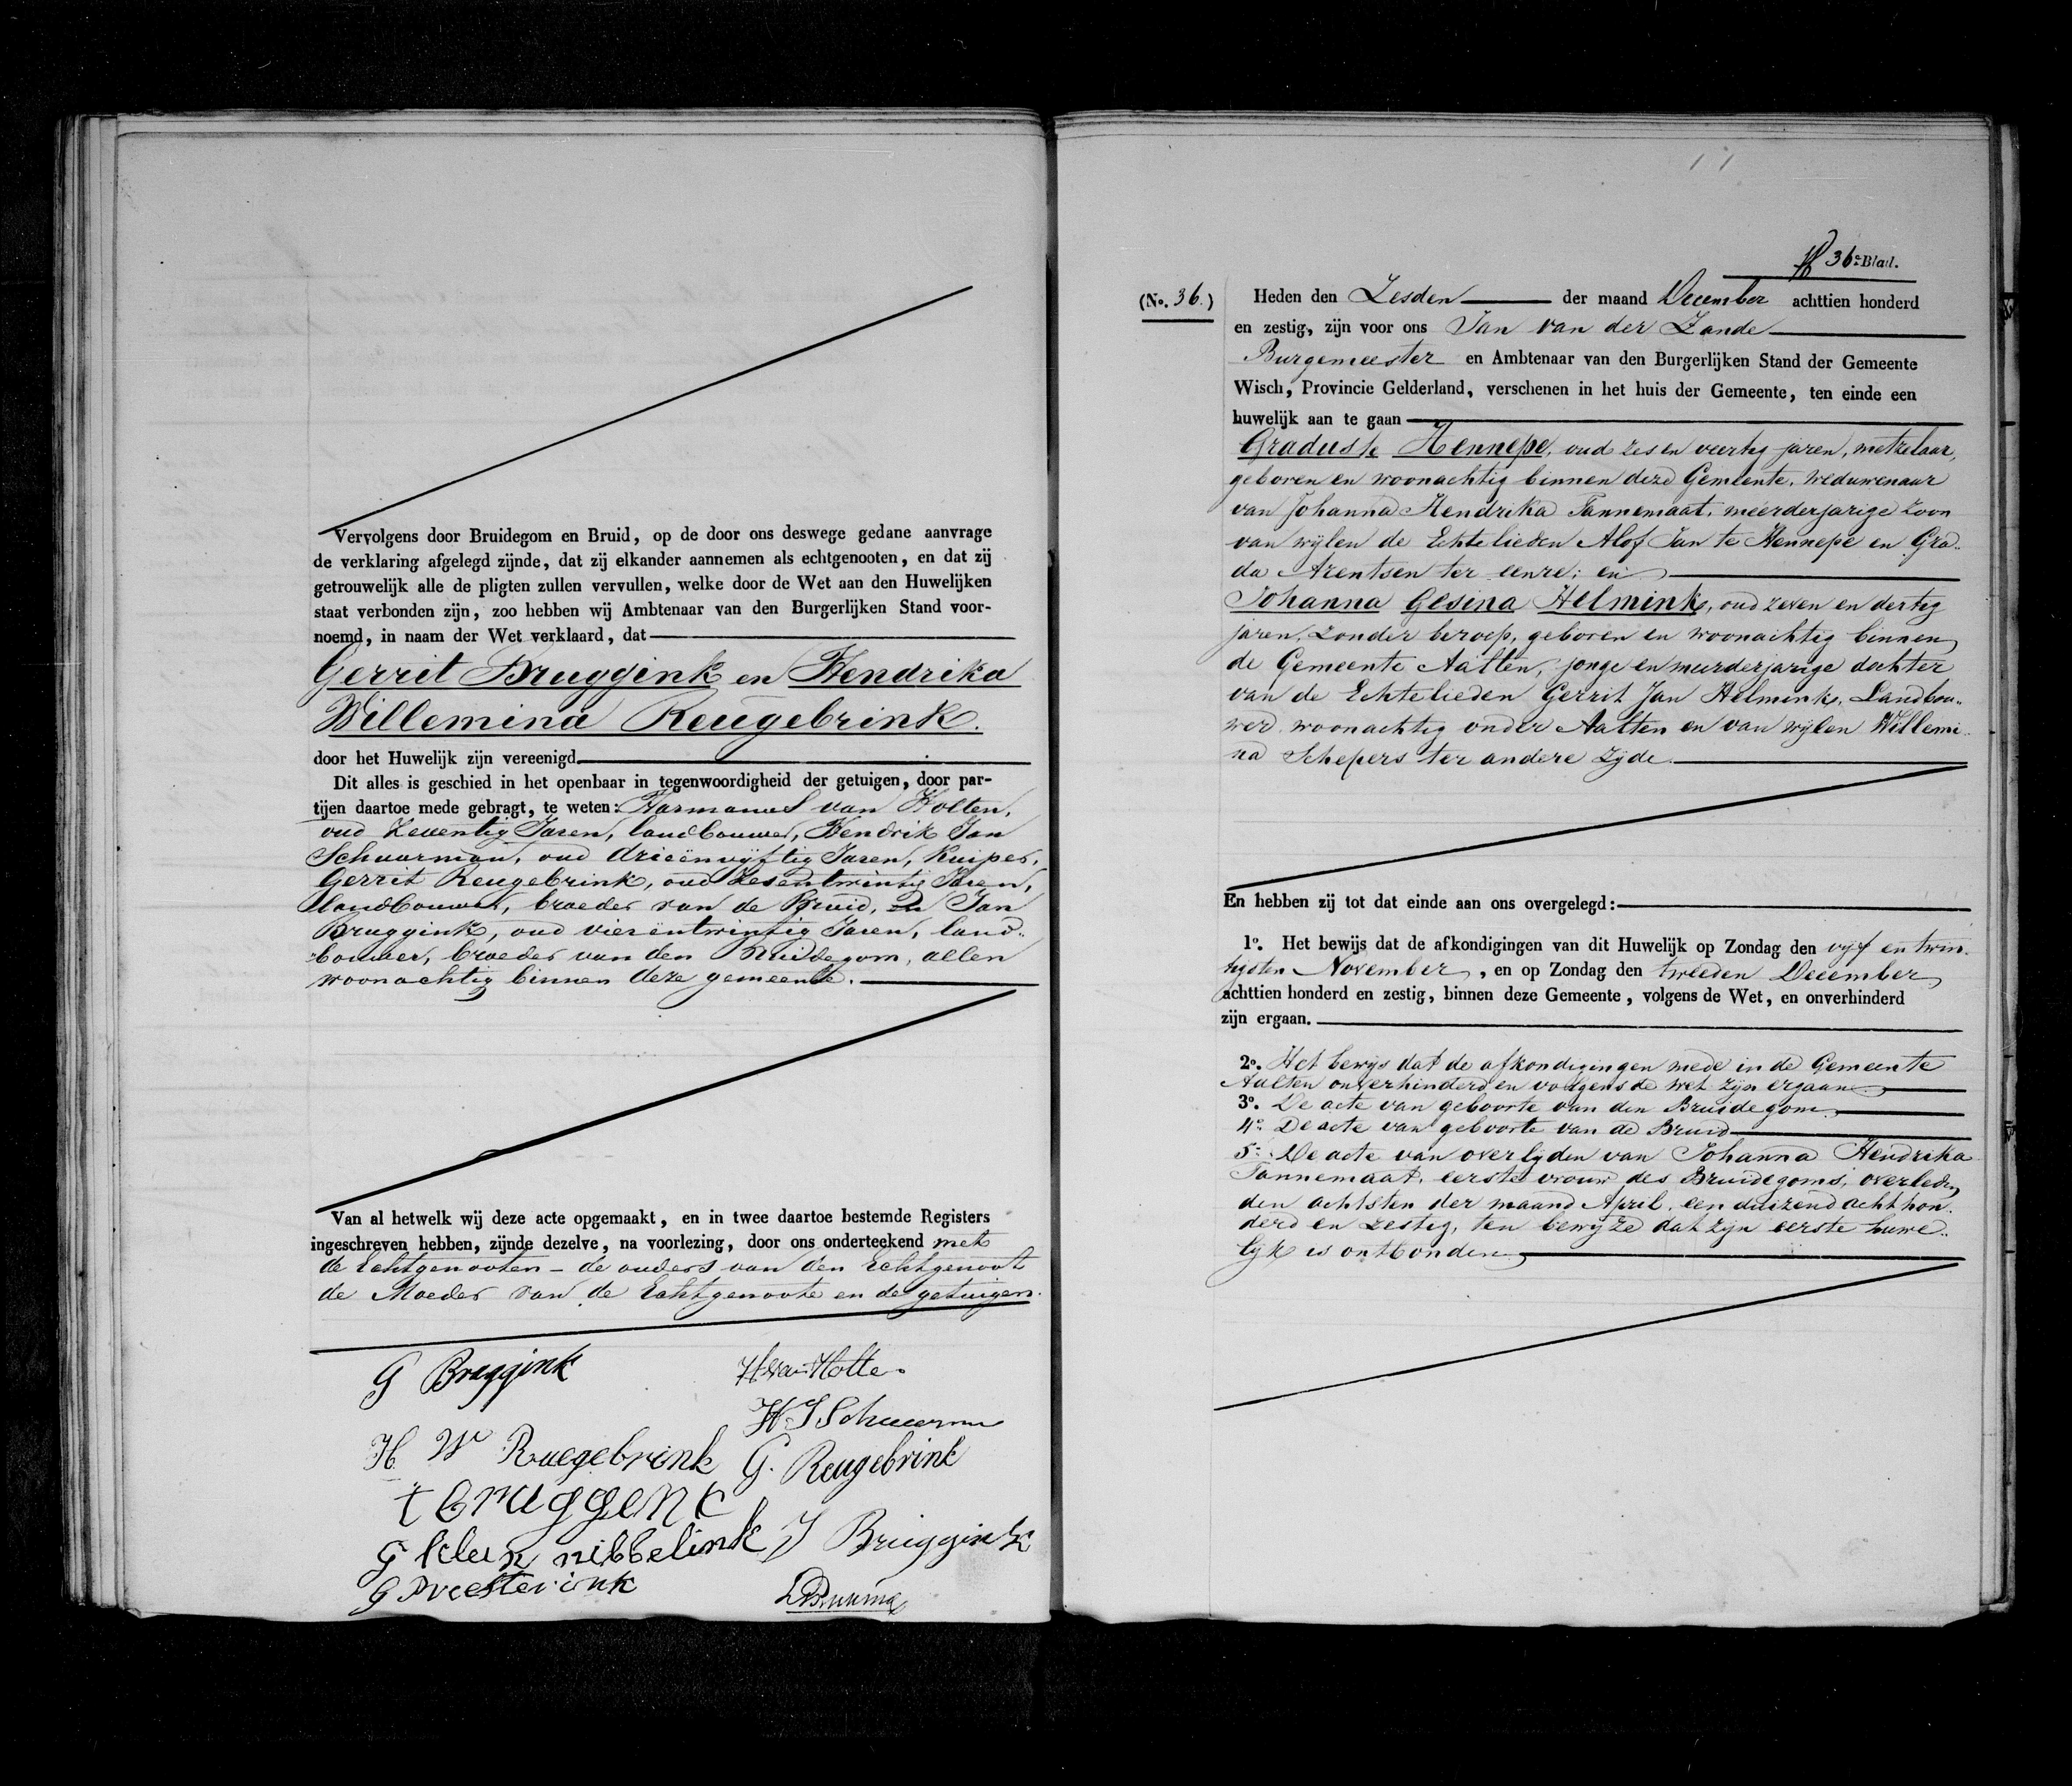 Vervolgens door Bruidegom en Bruid, op de door ons deswege gedane aanvrage
de verklaring afgelegd zijnde, dat zij elkander aannemen als echtgenooten, en dat zij
getrouwelijk alle de pligten zullen vervullen, welke door de Wet aan den Huwelijken
staat verbonden zijn, zoo hebben wij Ambtenaar van den Burgerlijken Stand voor-
noemd, in naam der Wet verklaard, dat
Gerrit Bruggink en Hendrika
Willemina Reugebrink.
door het Huwelijk zijn vereenigd
Dit alles is geschied in het openbaar in tegenwoordigheid der getuigen, door par-
tijen daartoe mede gebragt, te weten: Harmanus van Holten,
oud Zeventig Jaren, landbouwer, Hendrik Jan
Schuurman, oud drieënvijftig Jaren, Kuiper,
Gerrit Reugebrink, oud Zesentwintig Jaren,
landbouwer, broeder van de Bruid, en Jan
Bruggink, oud vierentwintig Jaren, land-
bouwer, broeder van den Bruidegom, allen
woonachtig binnen deze gemeente.
Van al hetwelk wij deze acte opgemaakt, en in twee daartoe bestemde Registers
ingeschreven hebben, zijnde dezelve, na voorlezing, door ons onderteekend met
de Echtgenooten - de ouders van den Echtgenoot
de Moeder van de Echtgenoote en de getuigen.
G Bruggink
H van Holte
H J Schuurm
H W Ruegebrink
G. Reugebrink
t bruggenk
G klein nibbelink
J Bruggink
G Preesterink
36e Blad.
(No. 36.)
Heden den Zesden der maand December achttien honderd
en zestig, zijn voor ons Jan van der Zande
Burgemeester en Ambtenaar van den Burgerlijken Stand der Gemeente
Wisch, Provincie Gelderland, verschenen in het huis der Gemeente, ten einde een
huwelijk aan te gaan
Gradus te Hennepe, oud zes en veertig jaren, metzelaar,
geboren en woonachtig binnen deze Gemeente, weduwenaar
van Johanna Hendrika Tannemaat, meerderjarige zoon
van wijlen de Echtelieden Alof Jan te Hennepe en Gra-
da Arentsen ter eenre; en
Johanna Gesina Helmink, oud zeven en dertig
jaren, zonder beroep, geboren en woonachtig binnen
de Gemeente Aalten, jonge en meerderjarige dochter
van de Echtelieden Gerrit Jan Helmink, Landbou-
wer woonachtig onder Aalten en van wijlen Willemi-
na Schepers ter andere zijde.
En hebben zij tot dat einde aan ons overgelegd:
1o. Het bewijs dat de afkondigingen van dit Huwelijk op Zondag den vijf en twin-
tigsten November, en op Zondag den tweeden December
achttien honderd en zestig, binnen deze Gemeente, volgens de Wet, en onverhinderd
zijn ergaan.
2o. Het bewijs dat de afkondigingen mede in de Gemeente
Aalten onverhinderd en volgens de wet zijn ergaan.
3o. De acte van geboorte van den Bruidegom.
4o. De acte van geboorte van de Bruid
5o. De acte van overlyden van Johanna Hendrika
Tannemaat, eerste vrouw des Bruidegoms, overleden
den achtsten der maand April, een duizend acht hon-
derd en zestig, ten bewijze dat zijn eerste huwe-
lijk is ontbonden